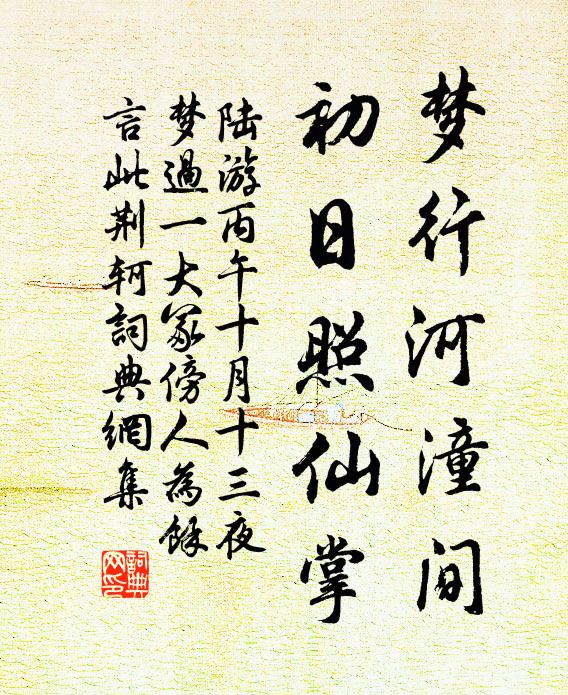 梦行河潼间
初日照仙掌
陆游丙午十月十三夜
梦過一大冢傍人為馀
言此荆轲詞典網集
詞典
网印